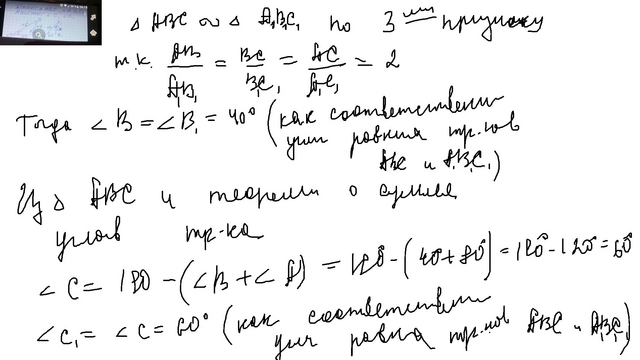 △ ABC ∾ △ A₁B₁C₁ по 3 ему признаку
т.к. AB/A₁B₁ = BC/B₁C₁ = AC/A₁C₁ = 2
Тогда ∠B = ∠B₁ = 40° (как соответствен
углы тр.ков
ABC и A₁B₁C₁)
Из △ ABC и теореми о сумме
углов тр-ка
∠C = 180 - (∠B + ∠A) = 180° - (40° + 80°) = 180° - 120° = 60°
∠C₁ = ∠C = 60° (как соответствен
тр.ков ABC и A₁B₁C₁)